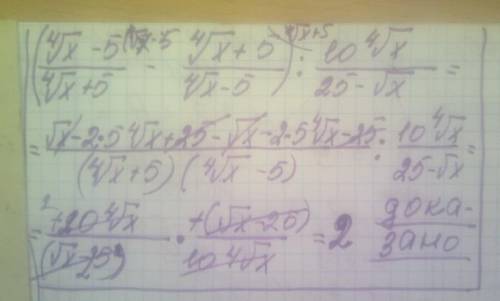 (⁴√x - 5 ⁽⁴√x - 5 / ⁴√x + 5 - ⁴√x + 5 ⁽⁴√x + 5 / ⁴√x - 5) : 10 ⁴√x / 25 - √x =
= √x - 2·5 ⁴√x + 25 - √x - 2·5 ⁴√x - 25 / (⁴√x + 5) (⁴√x - 5) : 10 ⁴√x / 25 - √x =
= +20 ⁴√x / (√x - 25) · +(√x - 25) / 10 ⁴√x = 2 дока-
зано